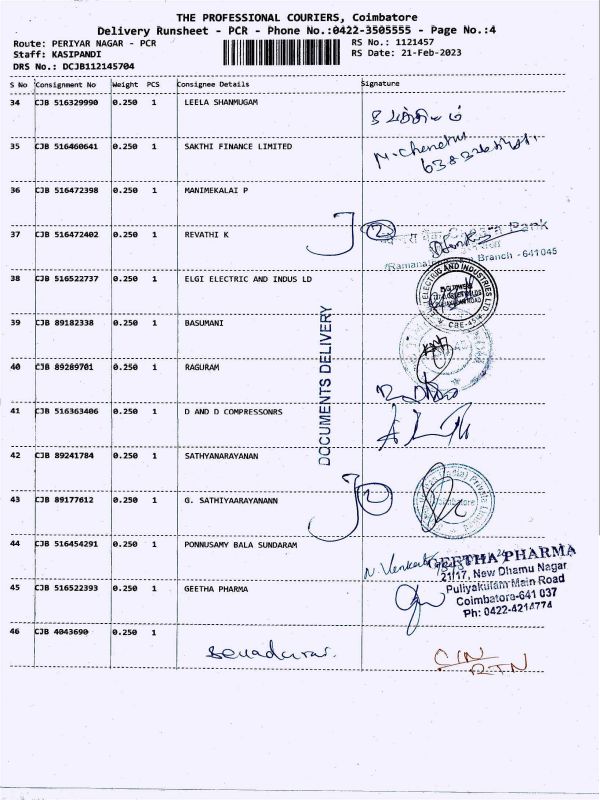 THE PROFESSIONAL COURIERS, Coimbatore
Delivery Runsheet - PCR - Phone No.:0422-3505555 - Page No.:4
Route: PERIYAR NAGAR - PCR RS No.: 1121457
Staff: KASIPANDI RS Date: 21-Feb-2023
DRS No.: DCJB112145704
S No Consignment No Weight PCS Consignee Details Signature
34 CJB 516329990 0.250 1 LEELA SHANMUGAM
35 CJB 516460641 0.250 1 SAKTHI FINANCE LIMITED
36 CJB 516472398 0.250 1 MANIMEKALAI P
37 CJB 516472402 0.250 1 REVATHI K
Bank
Branch - 641045
38 CJB 516522737 0.250 1 ELGI ELECTRIC AND INDUS LD
ELECTRIC AND INDUSTRIES LTD
39 CJB 89182338 0.250 1 BASUMANI
DOCUMENTS DELIVERY
40 CJB 89289701 0.250 1 RAGURAM
41 CJB 516363406 0.250 1 D AND D COMPRESSONRS
42 CJB 89241784 0.250 1 SATHYANARAYANAN
43 CJB 89177612 0.250 1 G. SATHIYAARAYANANN
44 CJB 516454291 0.250 1 PONNUSAMY BALA SUNDARAM
45 CJB 516522393 0.250 1 GEETHA PHARMA
GEETHA PHARMA
21/17, New Dhamu Nagar
Puliyakulam Main Road
Coimbatore-641 037
Ph: 0422-4214774
46 CJB 4043690 0.250 1
CIN
RTN